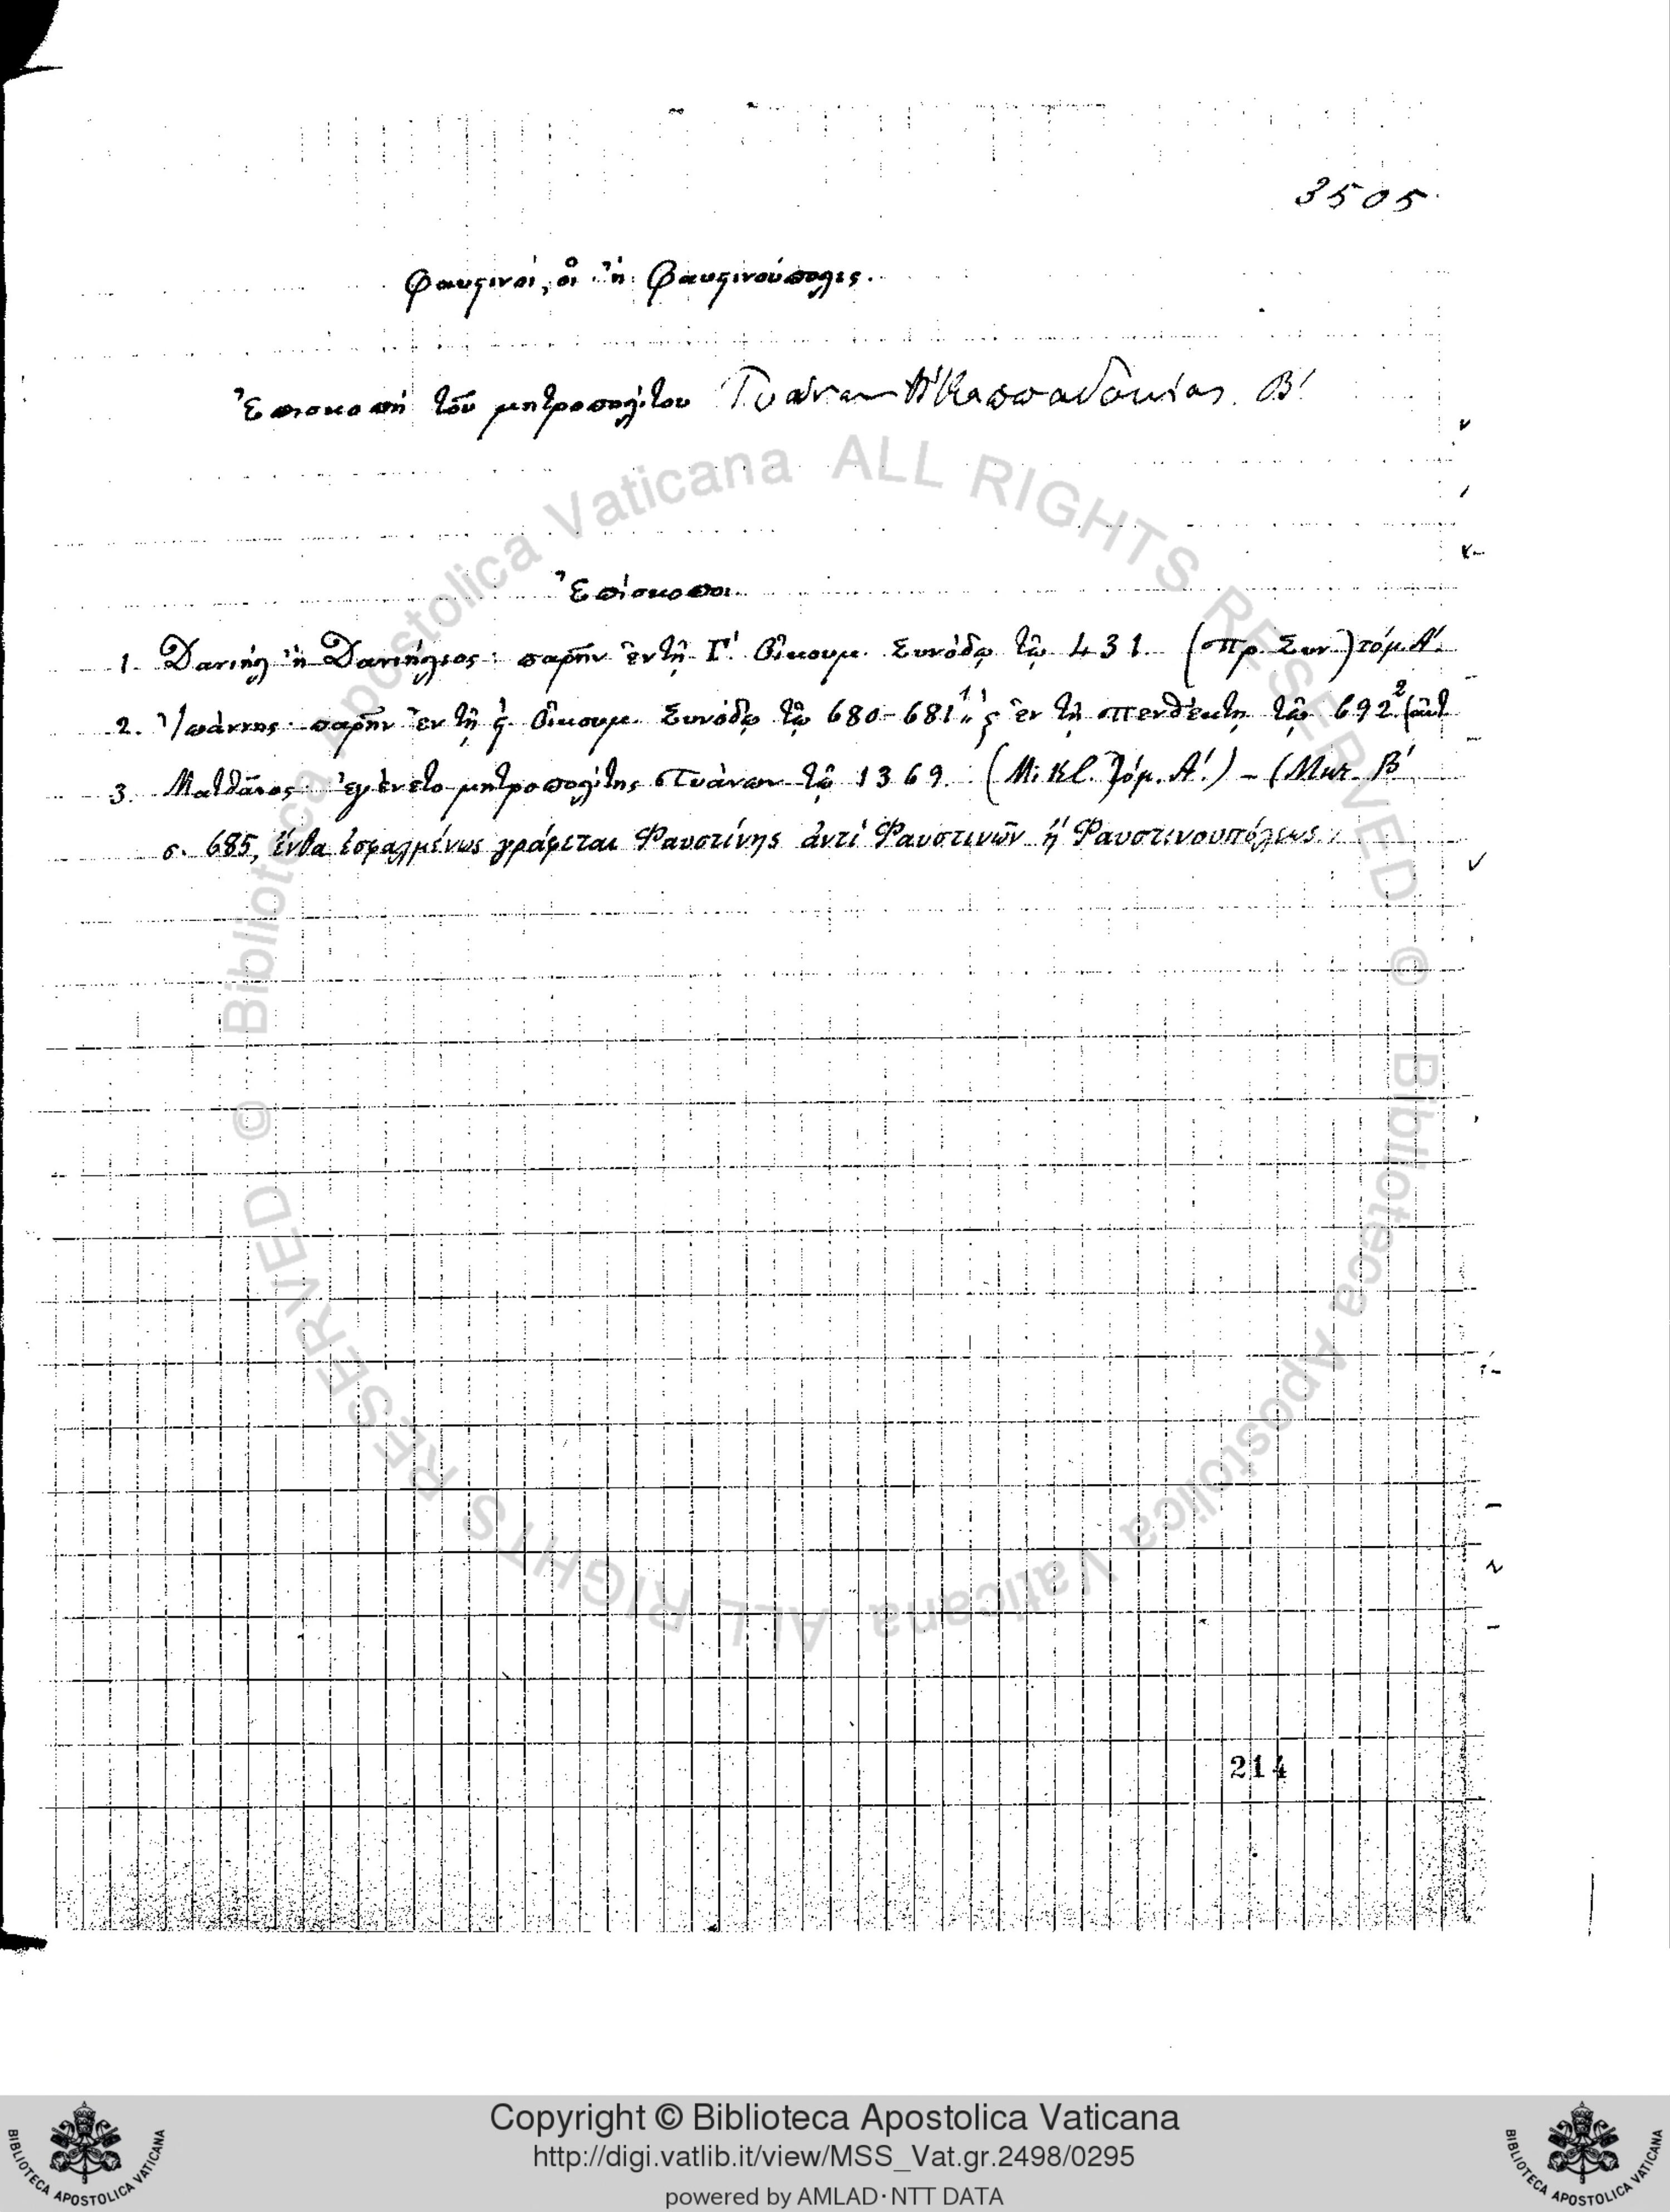 3505.
Φαυστινοί, οἱ ἢ Φαυστινούπολις.
Ἐπισκοπὴ τοῦ μητροπολίτου Τυάνων Καππαδοκίας Β΄
Ἐπίσκοποι
1. Δανιὴλ ἢ Δανιήλιος: παρῆν ἐν τῇ Γ΄ Οἰκουμ. Συνόδῳ τῷ 431. (Πρ. Συν.) τόμ. Α΄.
2. Ἰωάννης παρῆν ἐν τῇ ϛ΄ Οἰκουμ. Συνόδῳ τῷ 680-681¹ ἐν τῇ Πενθέκτῃ τῷ 692²
3. Ματθαῖος ἐγένετο μητροπολίτης Τυάνων τῷ 1369. (Mikl. Τόμ. Α΄.) - (Μικ. Β΄
σ. 685, ἔνθα ἐσφαλμένως γράφεται Φαυστίνης ἀντὶ Φαυστινῶν ἢ Φαυστινουπόλεως.
214
© Biblioteca Apostolica Vaticana ALL RIGHTS RESERVED
© Biblioteca Apostolica Vaticana ALL RIGHTS RESERVED
BIBLIOTECA APOSTOLICA VATICANA
Copyright © Biblioteca Apostolica Vaticana
http://digi.vatlib.it/view/MSS_Vat.gr.2498/0295
powered by AMLAD·NTT DATA
BIBLIOTECA APOSTOLICA VATICANA